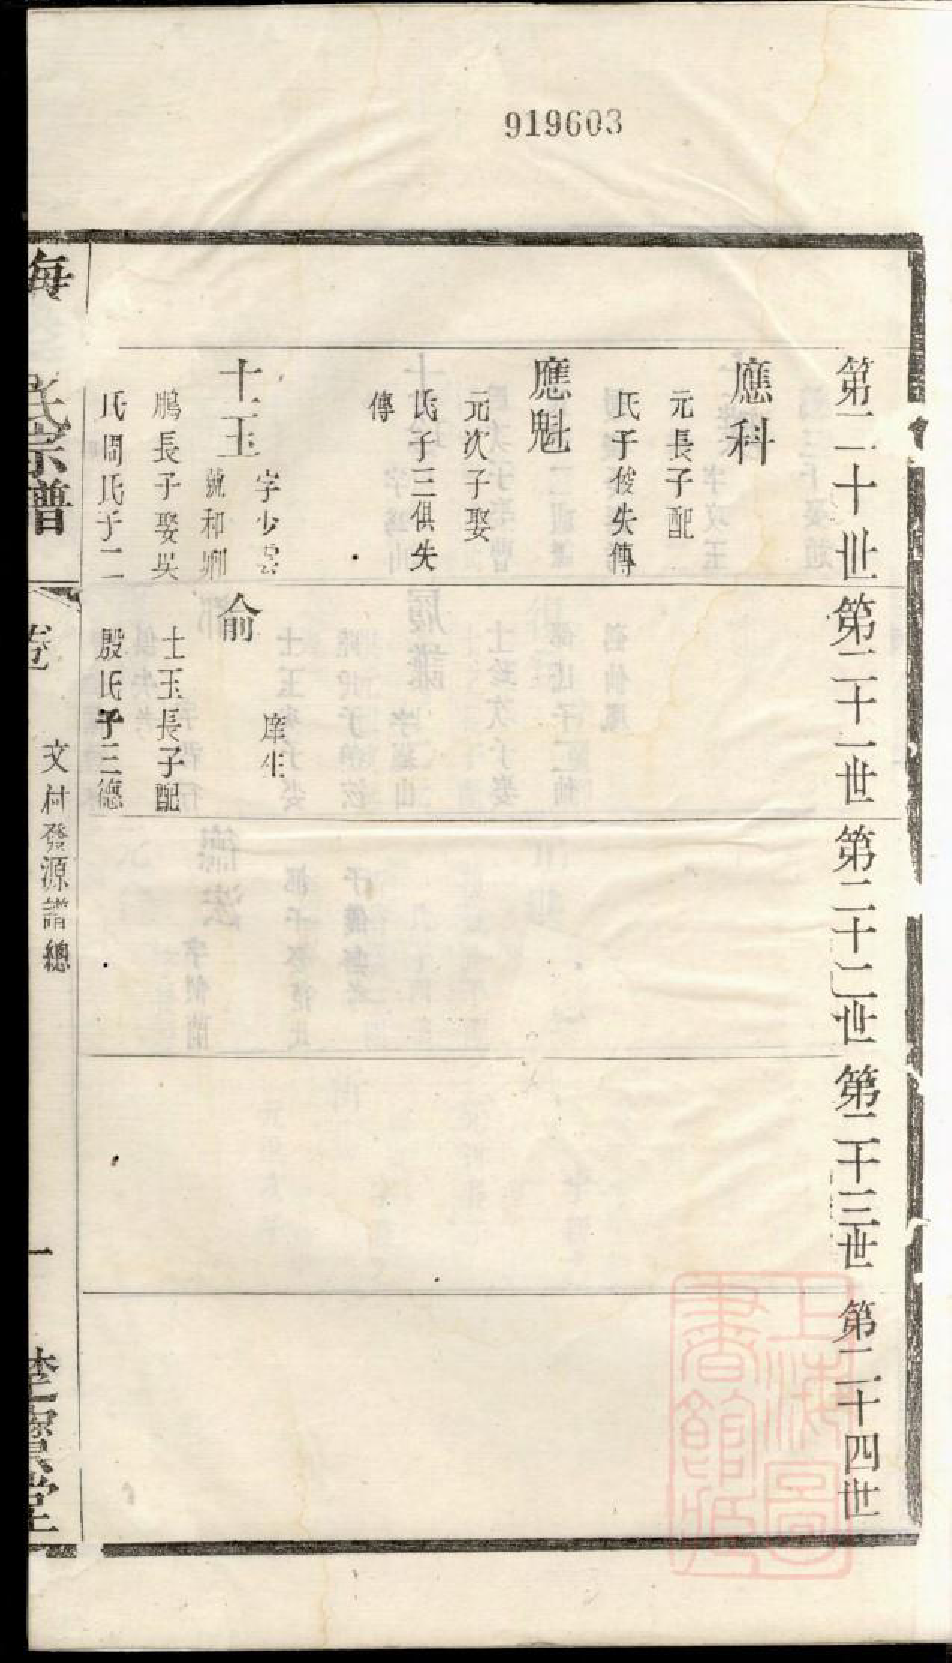 919603
第二十世
應科
元長子配
氏子俊失傳
應魁
元次子娶
氏子三俱失
傳
士玉
字少雲
號和
鵬長子娶吳
氏周氏子二
第二十一世
俞
庠生
士玉長子配
殷氏子三德
第二十二世
第二十三世
第二十四世
海
氏宗譜
卷
文村發源譜總
一
堂
上海圖書館藏